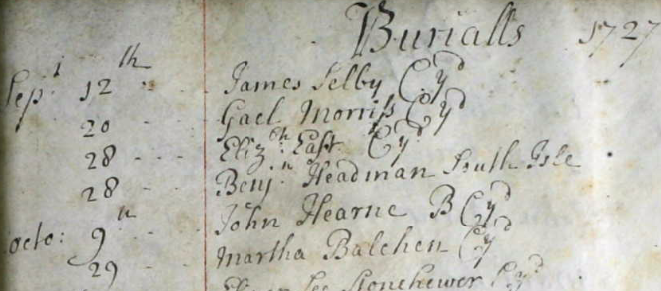 Burialls 1727
Sep.t 12th James Selby C:yd
20 Gael Morriss Cyd
28 Eliz:th East C:yd
28 Benj:n Headman South Isle
octo: 9th John Hearne B Cyd
29 Martha Balchen Cyd
Stonehewer Cyd